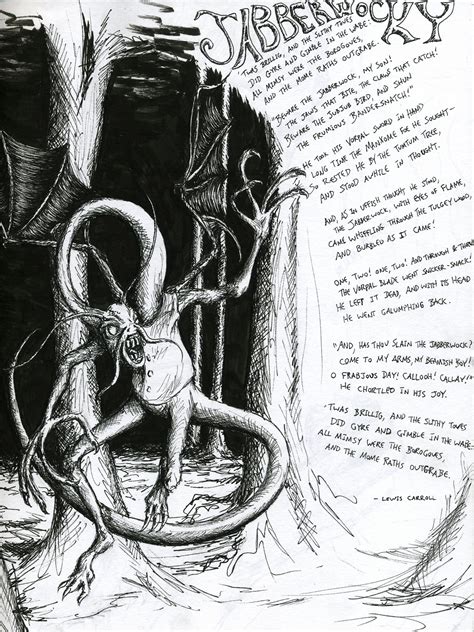 JABBERWOCKY
'TWAS BRILLIG, AND THE SLITHY TOVES
DID GYRE AND GIMBLE IN THE WABE:
ALL MIMSY WERE THE BOROGOVES,
AND THE MOME RATHS OUTGRABE.
"BEWARE THE JABBERWOCK, MY SON!
THE JAWS THAT BITE, THE CLAWS THAT CATCH!
BEWARE THE JUBJUB BIRD, AND SHUN
THE FRUMIOUS BANDERSNATCH!"
HE TOOK HIS VORPAL SWORD IN HAND
LONG TIME THE MANXOME FOE HE SOUGHT—
SO RESTED HE BY THE TUMTUM TREE,
AND STOOD AWHILE IN THOUGHT.
AND, AS IN UFFISH THOUGHT HE STOOD,
THE JABBERWOCK, WITH EYES OF FLAME,
CAME WHIFFLING THROUGH THE TULGEY WOOD
AND BURBLED AS IT CAME!
ONE, TWO! ONE, TWO! AND THROUGH &
THE VORPAL BLADE WENT SNICKER-SNACK!
HE LEFT IT DEAD, AND WITH ITS HEAD
HE WENT GALUMPHING BACK.
"AND, HAS THOU SLAIN THE JABBERWOCK?
COME TO MY ARMS, MY BEAMISH BOY!
O FRABJOUS DAY! CALLOOH! CALLAY!"
HE CHORTLED IN HIS JOY.
'TWAS BRILLIG, AND THE SLITHY TOVES
DID GYRE AND GIMBLE IN THE WABE:
ALL MIMSY WERE THE BOROGOVES,
AND THE MOME RATHS OUTGRABE.
- LEWIS CARROLL